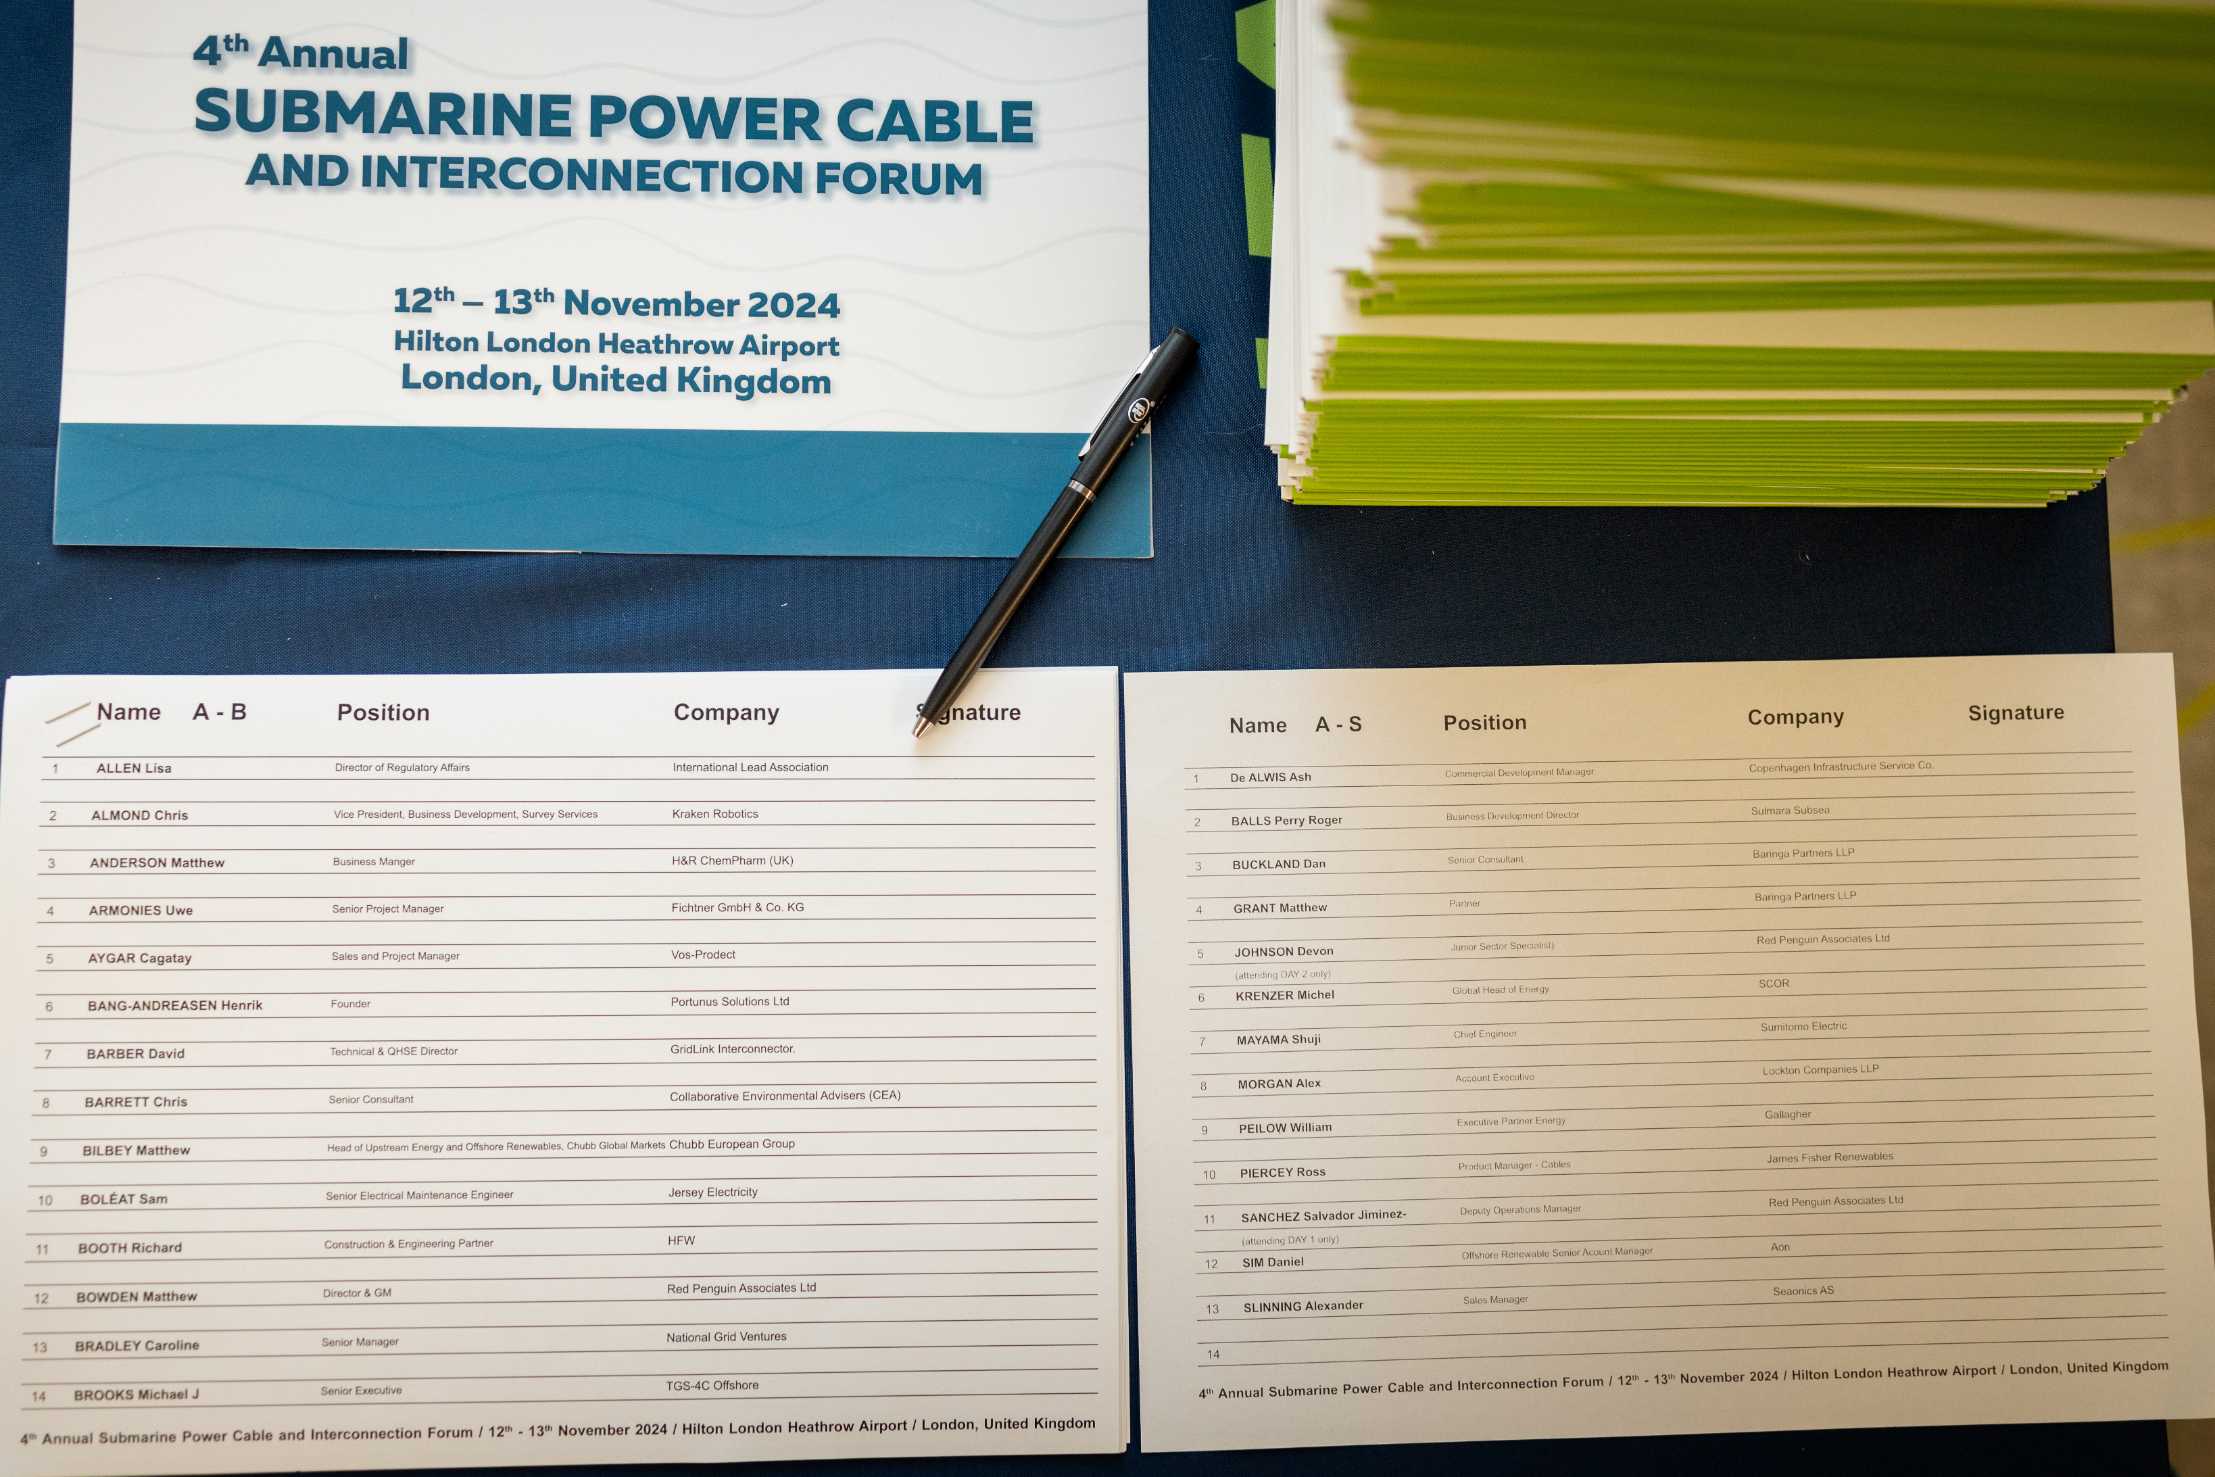 4th Annual
SUBMARINE POWER CABLE
AND INTERCONNECTION FORUM
12th – 13th November 2024
Hilton London Heathrow Airport
London, United Kingdom
Name A - B Position Company Signature
1 ALLEN Lisa Director of Regulatory Affairs International Lead Association
2 ALMOND Chris Vice President, Business Development, Survey Services Kraken Robotics
3 ANDERSON Matthew Business Manger H&R ChemPharm (UK)
4 ARMONIES Uwe Senior Project Manager Fichtner GmbH & Co. KG
5 AYGAR Cagatay Sales and Project Manager Vos-Prodect
6 BANG-ANDREASEN Henrik Founder Portunus Solutions Ltd
7 BARBER David Technical & QHSE Director GridLink Interconnector.
8 BARRETT Chris Senior Consultant Collaborative Environmental Advisers (CEA)
9 BILBEY Matthew Head of Upstream Energy and Offshore Renewables, Chubb Global Markets Chubb European Group
10 BOLÉAT Sam Senior Electrical Maintenance Engineer Jersey Electricity
11 BOOTH Richard Construction & Engineering Partner HFW
12 BOWDEN Matthew Director & GM Red Penguin Associates Ltd
13 BRADLEY Caroline Senior Manager National Grid Ventures
14 BROOKS Michael J Senior Executive TGS-4C Offshore
4th Annual Submarine Power Cable and Interconnection Forum / 12th - 13th November 2024 / Hilton London Heathrow Airport / London, United Kingdom
Name A - S Position Company Signature
1 De ALWIS Ash Commercial Development Manager Copenhagen Infrastructure Service Co.
2 BALLS Perry Roger Business Development Director Sulmara Subsea
3 BUCKLAND Dan Senior Consultant Baringa Partners LLP
4 GRANT Matthew Partner Baringa Partners LLP
5 JOHNSON Devon Junior Sector Specialist) Red Penguin Associates Ltd
(attending DAY 2 only)
6 KRENZER Michel Global Head of Energy SCOR
7 MAYAMA Shuji Chief Engineer Sumitomo Electric
8 MORGAN Alex Account Executive Lockton Companies LLP
9 PEILOW William Executive Partner Energy Gallagher
10 PIERCEY Ross Product Manager - Cables James Fisher Renewables
11 SANCHEZ Salvador Jiminez- Deputy Operations Manager Red Penguin Associates Ltd
(attending DAY 1 only)
12 SIM Daniel Offshore Renewable Senior Acount Manager Aon
13 SLINNING Alexander Sales Manager Seaonics AS
14
4th Annual Submarine Power Cable and Interconnection Forum / 12th - 13th November 2024 / Hilton London Heathrow Airport / London, United Kingdom